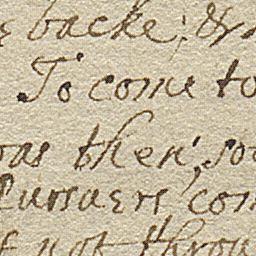 backe; &
To come to
was then, so
Pursuers com
not throu